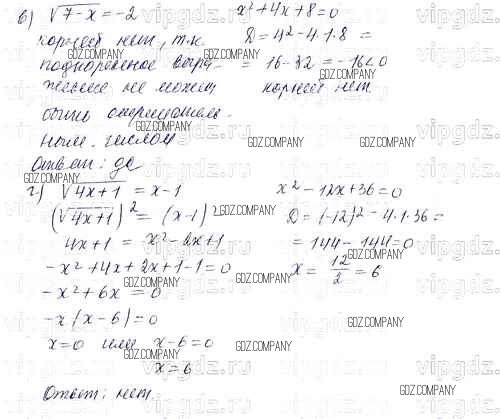 в) √7-x = -2
корней нет, т.к.
подкоренное выра-
жение не может
быть отрицатель-
ным числом
Ответ: да
x² + 4x + 8 = 0
D = 4² - 4·1·8 =
= 16 - 32 = -16 < 0
корней нет
г) √4x+1 = x-1
(√4x+1)² = (x-1)²
4x+1 = x² - 2x + 1
-x² + 4x + 2x + 1 - 1 = 0
-x² + 6x = 0
-x(x-6) = 0
x = 0 или x-6 = 0
x = 6
Ответ: нет.
x² - 12x + 36 = 0
D = (-12)² - 4·1·36 =
= 144 - 144 = 0
x = 12/2 = 6
GDZ.COMPANY
vipgdz.ru